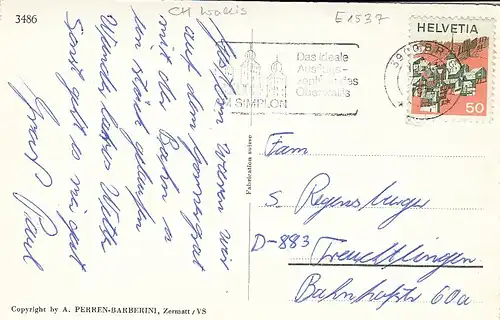 3486
CH Wallis
E1537
HELVETIA
50
3900 BR
Das ideale
Ausflugs-
Oberwallis
SIMPLON
Gestern waren wir
auf dem Gornergrat
mit der Bahn u
sonst geht es mir gut
Gruß Paul
Fabrication suisse
Fam
S. Regensburger
D-883 Treuchtlingen
Bahnhofstr 60a
Copyright by A. PERREN-BARBERINI, Zermatt/VS